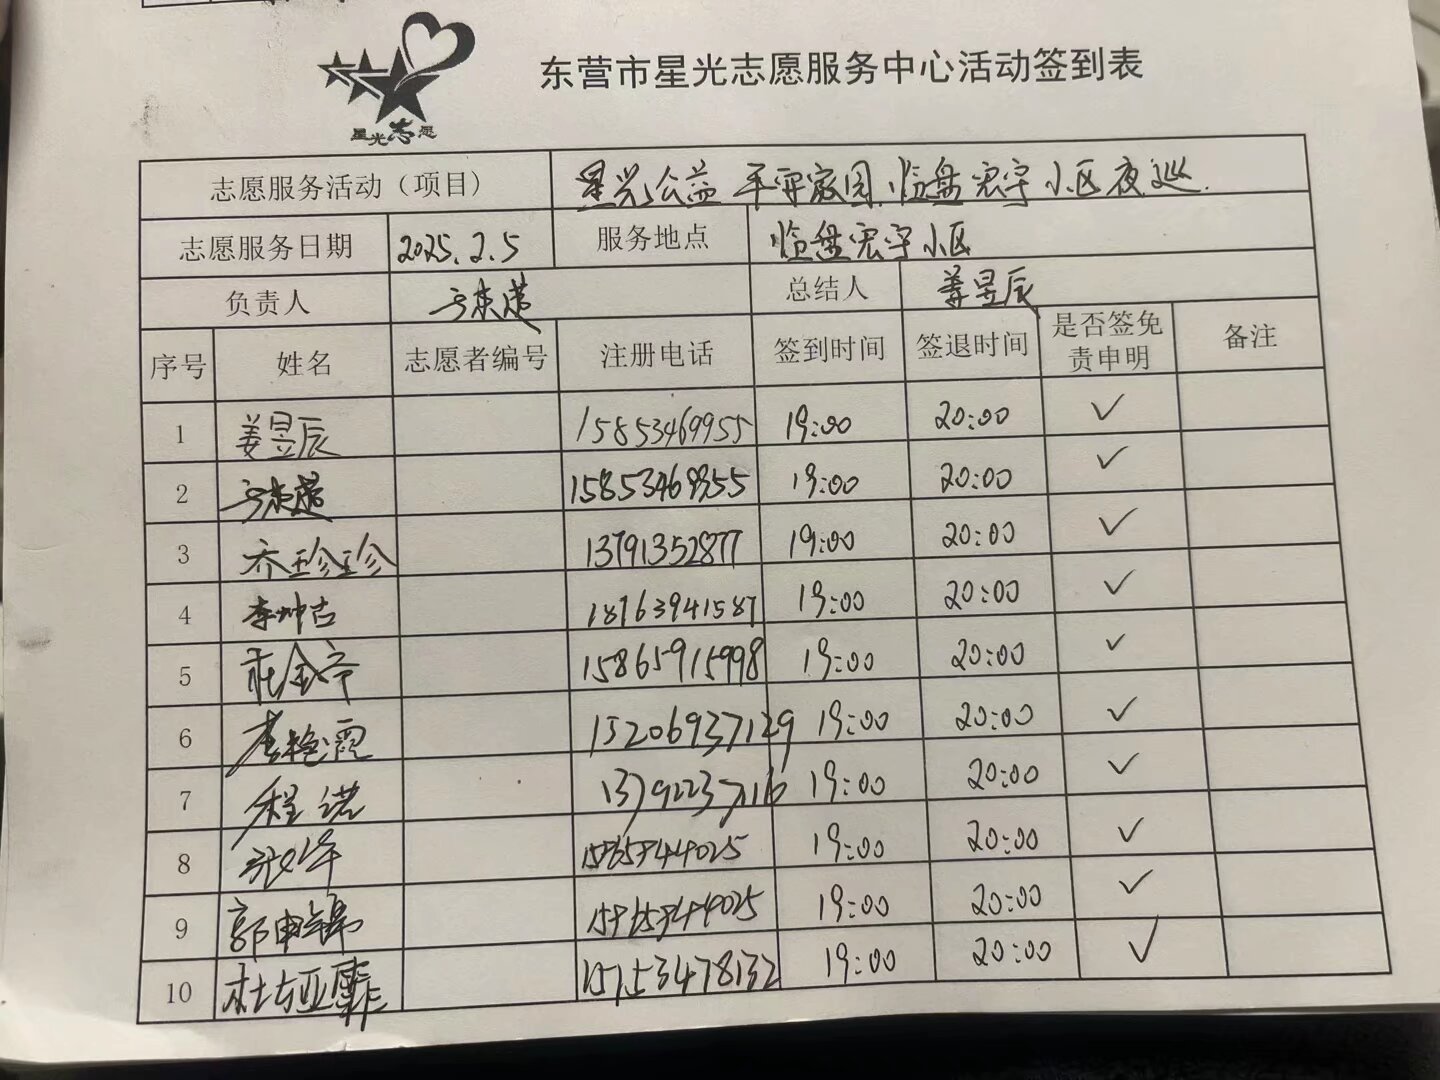 星光志愿
东营市星光志愿服务中心活动签到表
志愿服务活动（项目） 星光公益 平安家园 临盘宏宇小区夜巡.
志愿服务日期 2025.2.5 服务地点 临盘宏宇小区
负责人 总结人 姜昱辰
序号 姓名 志愿者编号 注册电话 签到时间 签退时间 是否签免责申明 备注
1 姜昱辰 15853469955 19:00 20:00 ✓
2 15853469955 19:00 20:00 ✓
3 乔珍珍 13791352877 19:00 20:00 ✓
4 李坤古 18763941587 19:00 20:00 ✓
5 杜金宁 15865915998 19:00 20:00 ✓
6 李艳霞 15206937129 19:00 20:00 ✓
7 程诺 13792237116 19:00 20:00 ✓
8 19:00 20:00 ✓
9 郭 19:00 20:00 ✓
10 杜亚 15753478132 19:00 20:00 ✓